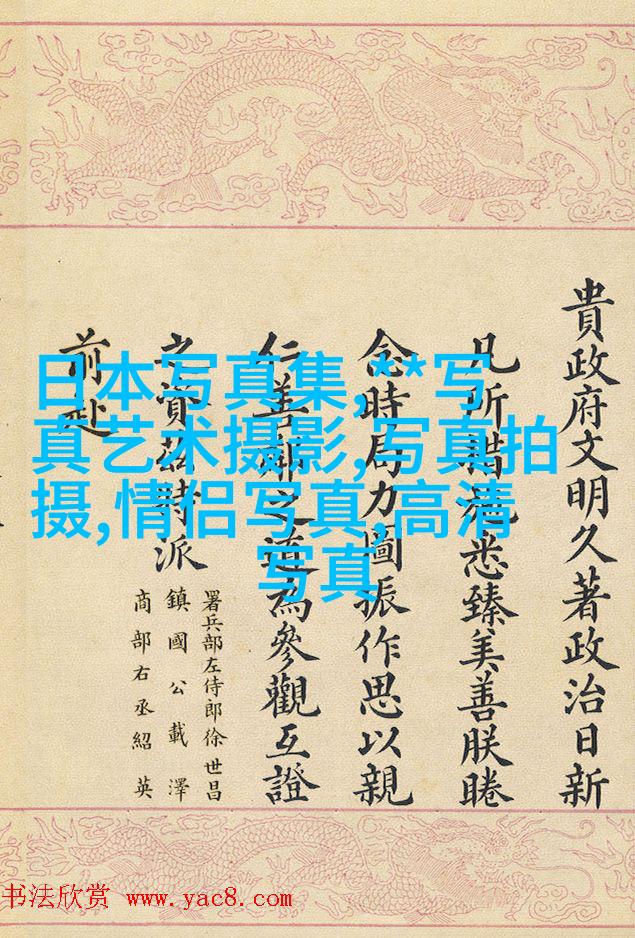 日本写真集,**写
真艺术摄影,写真拍
摄,情侣写真,高清
写真
貴政府文明久著政治日新
凡所措施悉臻美善朕睠
念時局力圖振作思以親
仁善鄰之道為參觀互證
之資茲特派
署兵部左侍郎徐世昌
鎮國公載澤
商部右丞紹英
前赴
书法欣赏 www.yac8.com